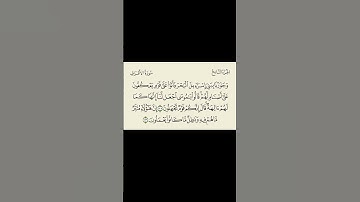 الجزء التاسع
سورة الأعراف
وَجَٰوَزْنَا بِبَنِىٓ إِسْرَٰٓءِيلَ ٱلْبَحْرَ فَأَتَوْا۟ عَلَىٰ قَوْمٍ يَعْكُفُونَ
عَلَىٰٓ أَصْنَامٍ لَّهُمْ قَالُوا۟ يَٰمُوسَى ٱجْعَل لَّنَآ إِلَٰهًا كَمَا
لَهُمْ ءَالِهَةٌ قَالَ إِنَّكُمْ قَوْمٌ تَجْهَلُونَ ١٣٨ إِنَّ هَٰٓؤُلَآءِ مُتَبَّرٌ
مَّا هُمْ فِيهِ وَبَٰطِلٌ مَّا كَانُوا۟ يَعْمَلُونَ ١٣٩